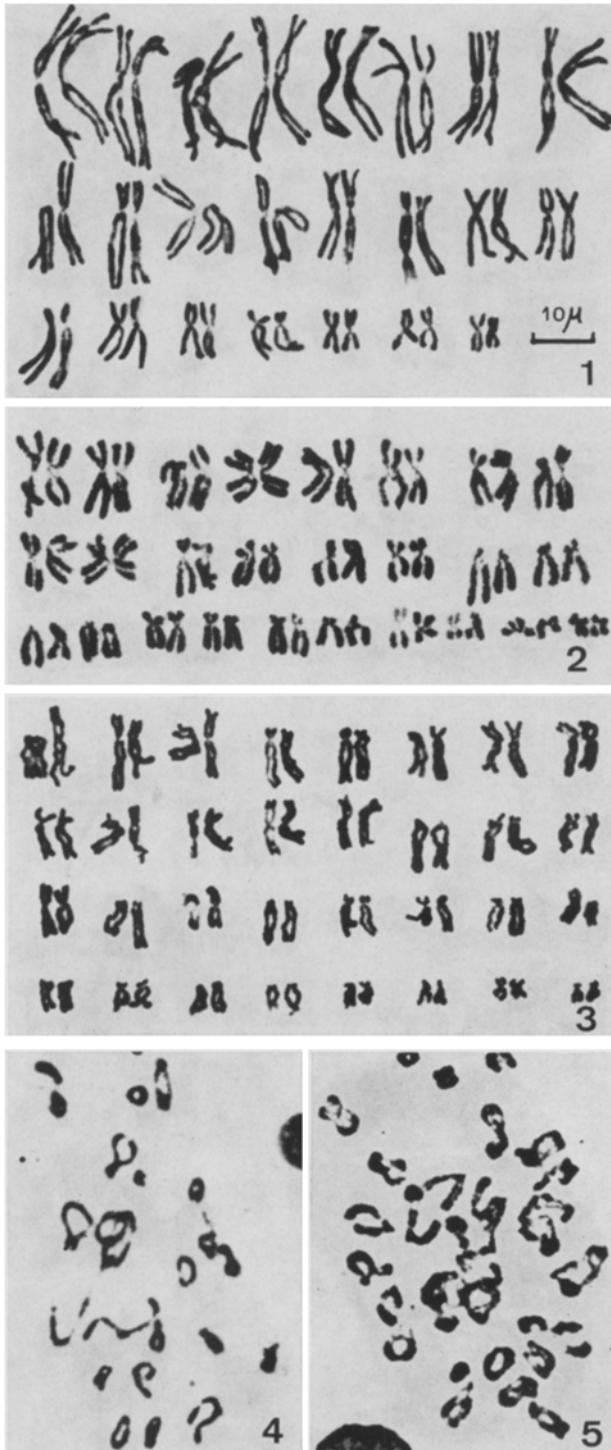 10μ
1
2
3
4
5